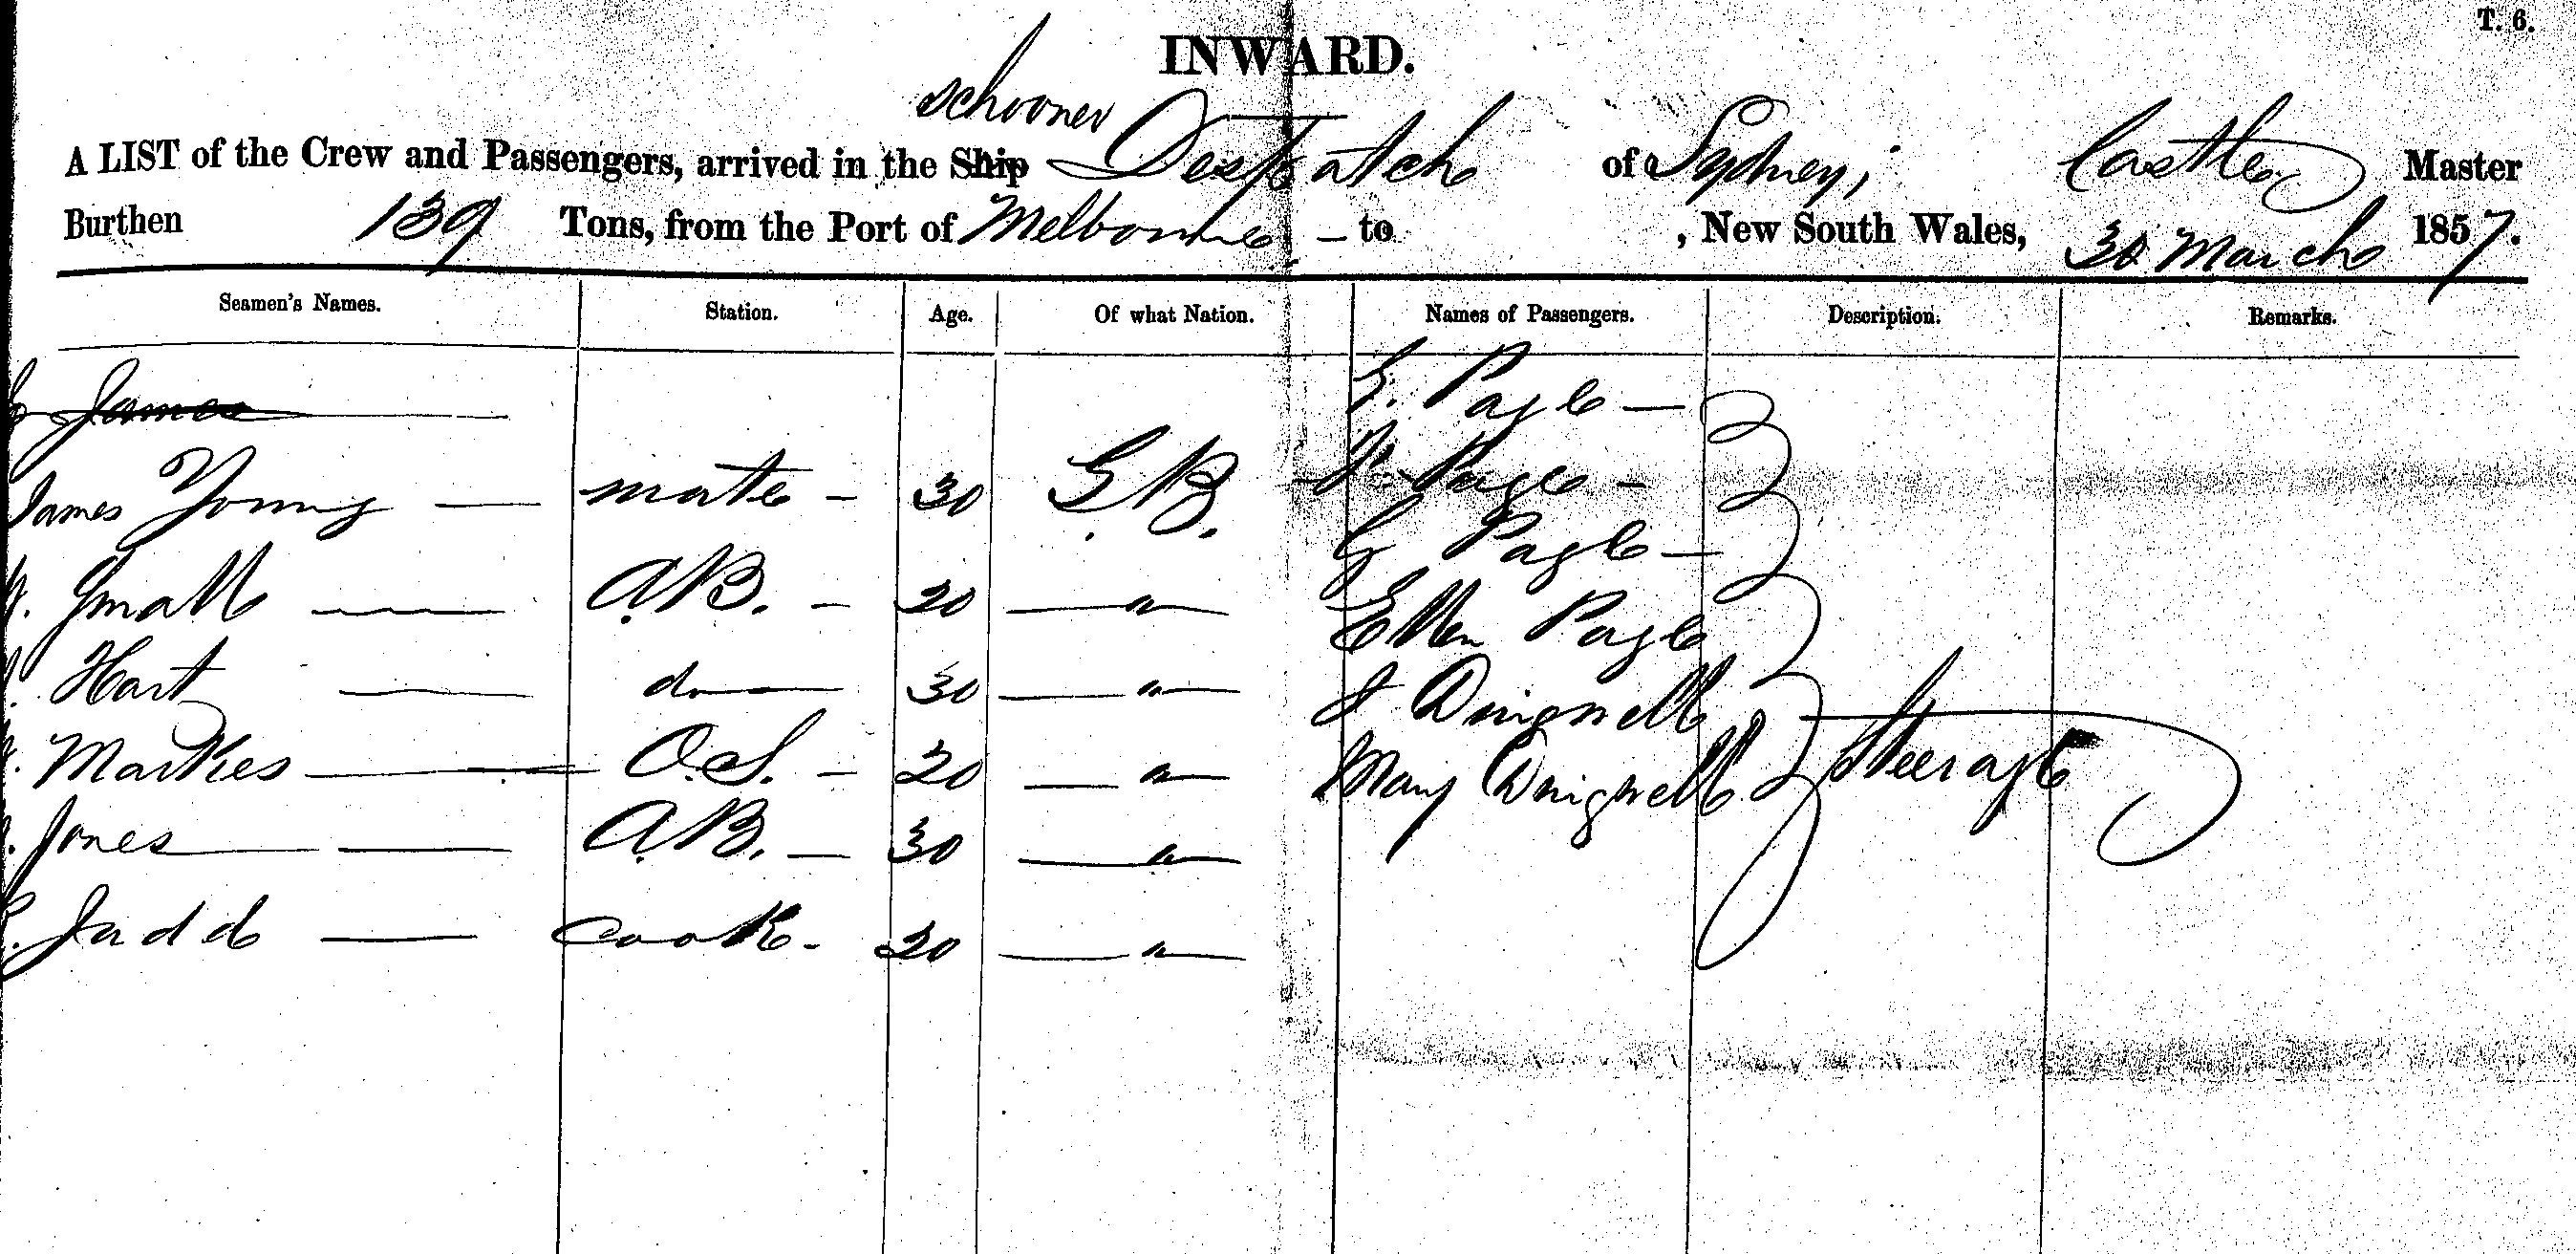 T. 6.
INWARD.
schooner
A LIST of the Crew and Passengers, arrived in the Ship Despatch of Sydney, Castle Master
Burthen 139 Tons, from the Port of Melbourne - to , New South Wales, 30 March 1857.
Seamen's Names. Station. Age. Of what Nation. Names of Passengers. Description. Remarks.
James
G. Page —
James Young — mate - 30 G.B. Page -
Small — A.B. - 20 — " — G Page —
Ellen Page
Hart — do — 30 — " — J Dingwell
Markes — O.S. - 20 — " — Mary Dingwell Steerage
Jones — A.B. - 30 — " —
Judd — Cook - 20 — " —